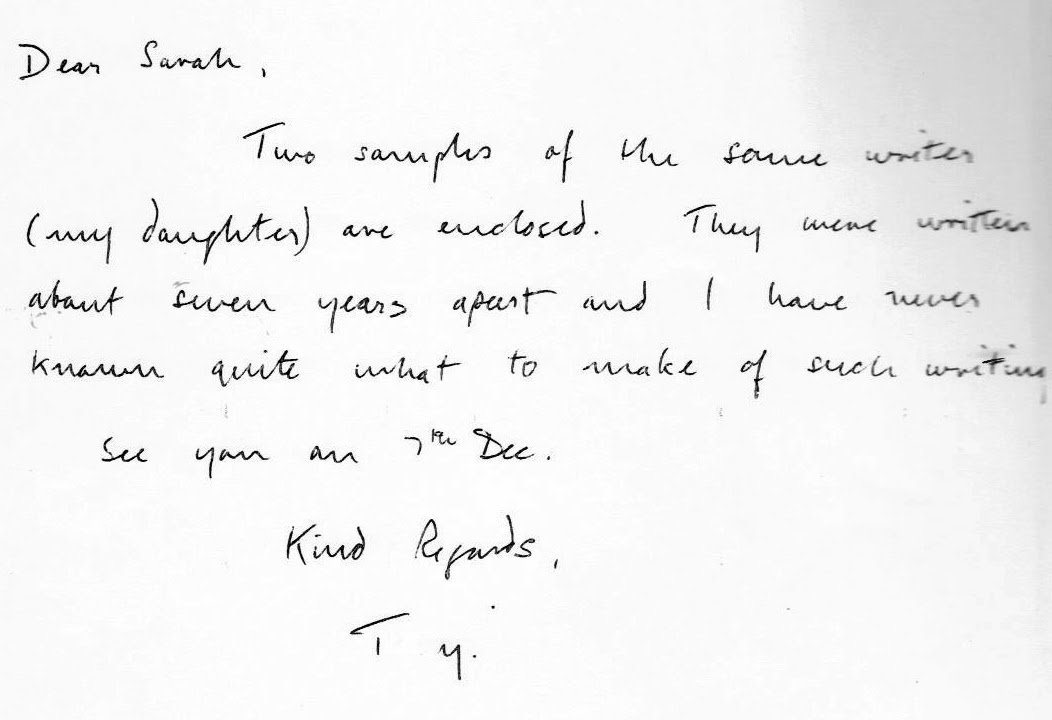 Dear Sarah,
Two samples of the same writer
(my daughter) are enclosed. They were written
about seven years apart and I have never
known quite what to make of such writing
See you on 7th Dec.
Kind Regards,
T y.